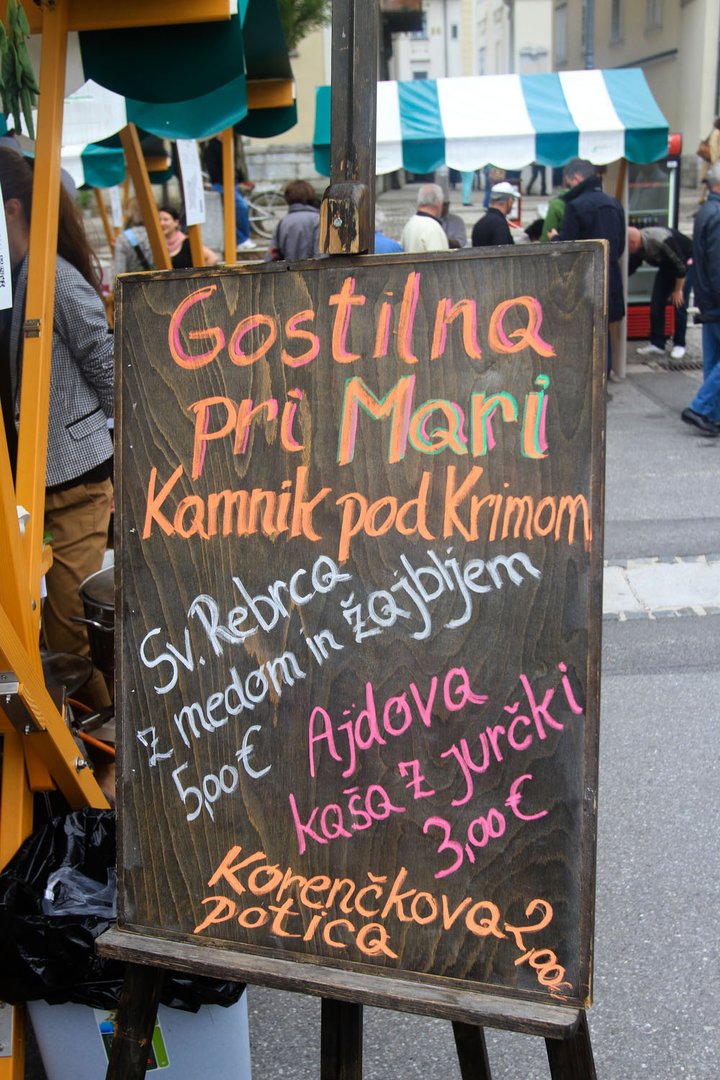 Gostilna
pri Mari
Kamnik pod Krimom
Sv. Rebrca
z medom in žajbljem
5,00 €
Ajdova
kaša z jurčki
3,00 €
Korenčkova
potica
2,00€